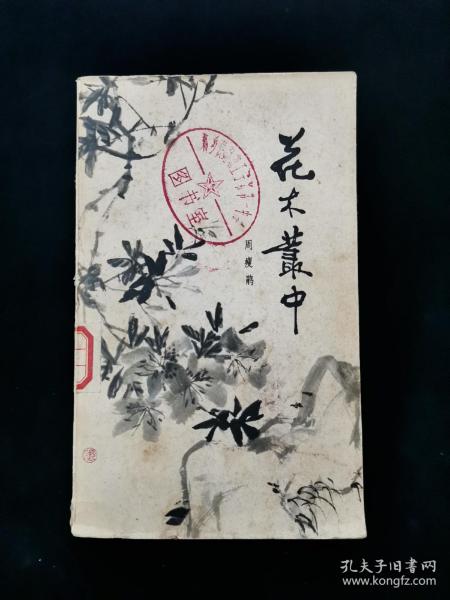 花木叢中
周瘦鹃
图书室
孔夫子旧书网
www.kongfz.com